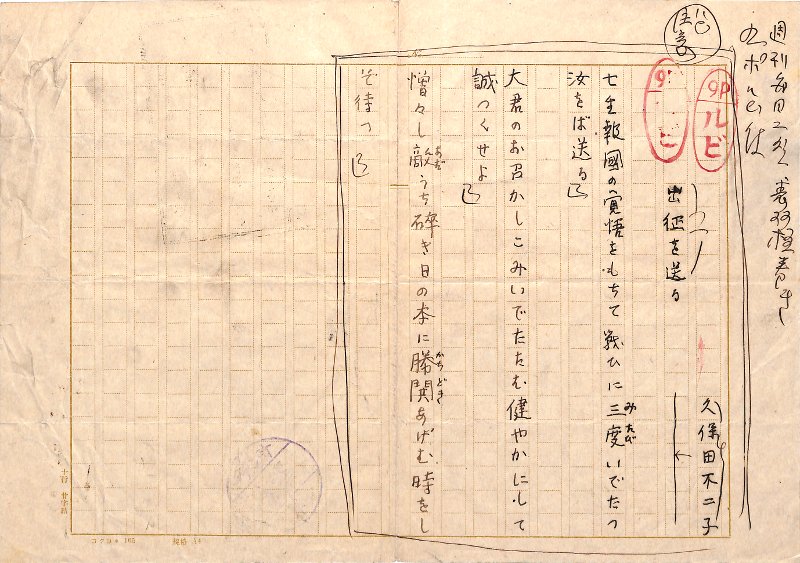 週刊毎日
9P ルビ
9
出征を送る
久保田不二子
七生報國の覚悟をもちて戦ひに三度いでたつ
みたび
汝をば送る
大君のお召かしこみいでたたむ健やかにして
誠つくせよ
憎々し敵うち碎き日の本に勝閧あげむ時をし
あだ
かちどき
ぞ待つ
十行 廿字詰
コクヨ 165 規格 A4